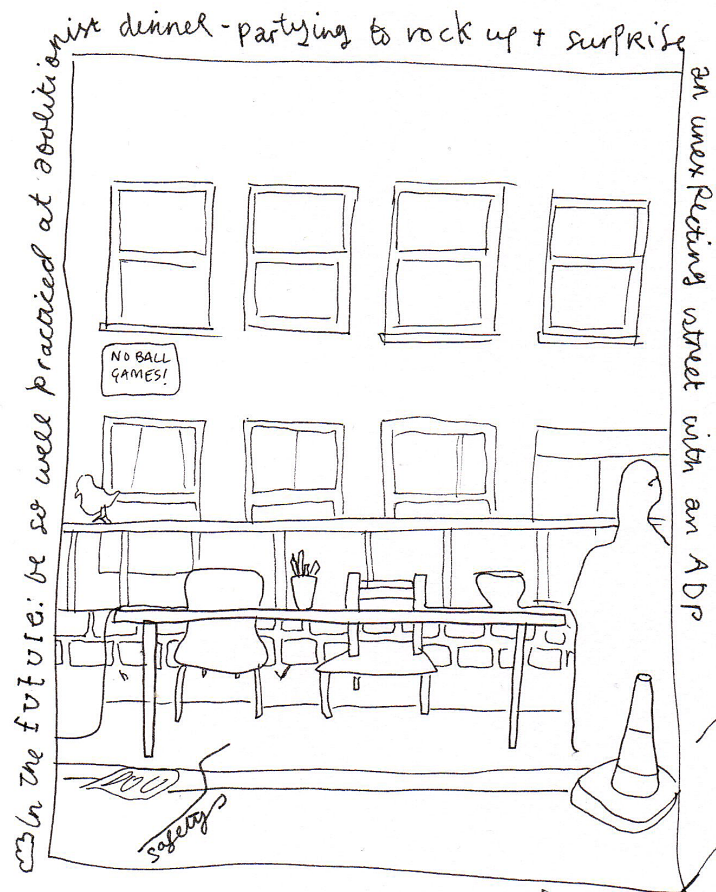 In the future: be so well practiced at abolitionist dinner-partying to rock up + surprise an unexpecting street with an ADP
NO BALL
GAMES!
safety